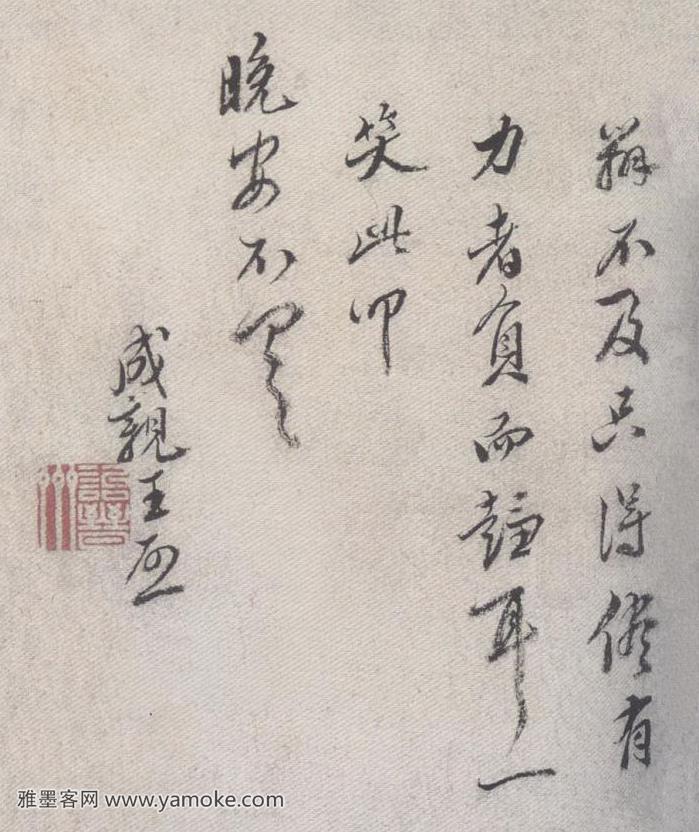 辦不及只得有
力者負而趨耳一
笑此叩
晚安不
成親王
雅墨客网 www.yamoke.com